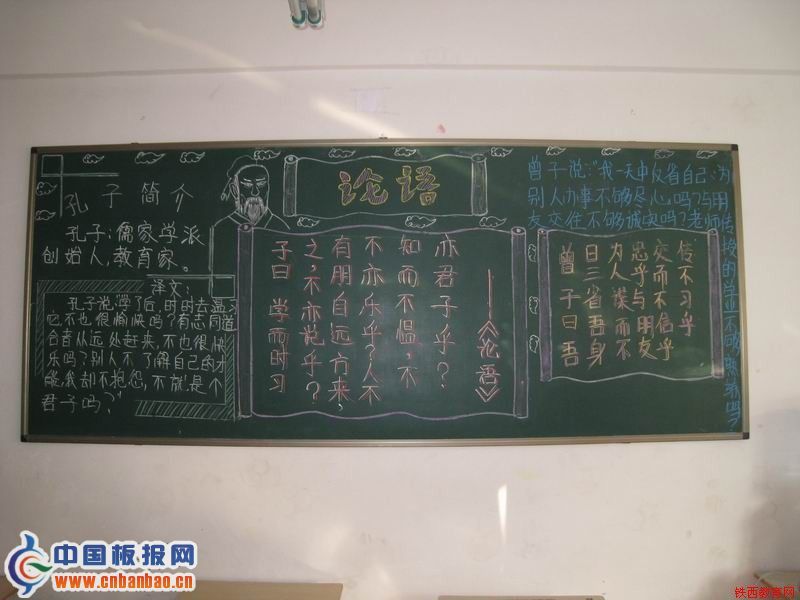 孔子简介
孔子:儒家学派
创始人,教育家。
译文:
孔子说,"学了后,时时去温习
它,不也很愉快吗?有志同道
合者从远处赶来,不也很快
乐吗?别人不了解自己的才
能,我却不抱怨,不就是个
君子吗?"
论语
子曰 学而时习
之,不亦说乎?
有朋自远方来,
不亦乐乎?人不
知而不愠,不
亦君子乎?
——《论语》
曾子说:"我一天中反省自己:为
别人办事不够尽心吗?与朋
友交往不够诚实吗?老师
传授的学业不够熟练吗?
曾子曰吾
日三省吾身
为人谋而不
忠乎与朋友
交而不信乎
传不习乎
中国板报网
www.cnbanbao.cn
铁西教育网